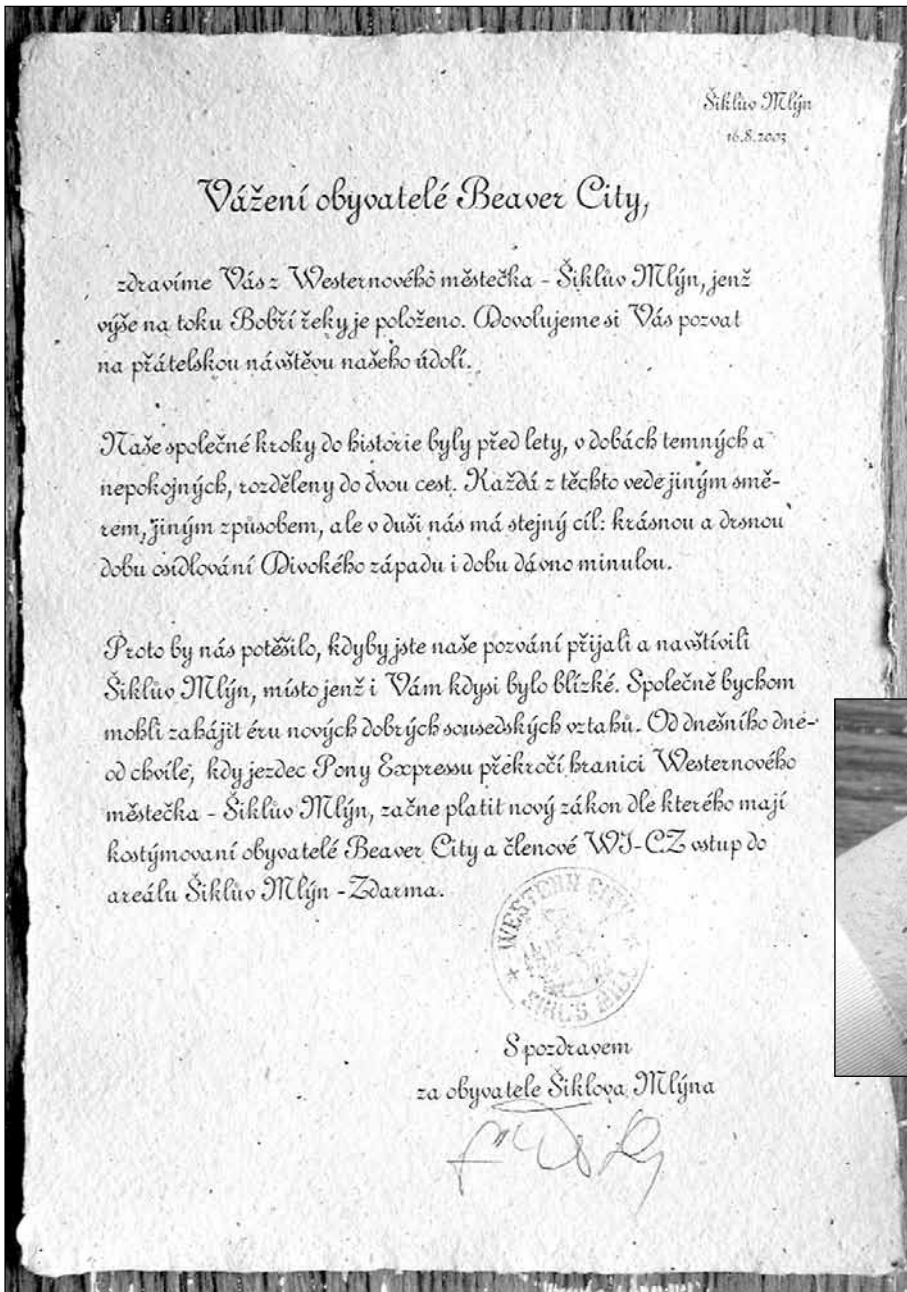 Šiklův Mlýn
16.8.2003
Vážení obyvatelé Beaver City,
zdravíme Vás z Westernového městečka - Šiklův Mlýn, jenž
výše na toku Bobří řeky je položeno. Dovolujeme si Vás pozvat
na přátelskou návštěvu našeho údolí.
Naše společné kroky do historie byly před lety, v dobách temných a
nepokojných, rozděleny do dvou cest. Každá z těchto vede jiným smě-
rem, jiným způsobem, ale v duši nás má stejný cíl: krásnou a drsnou
dobu osidlování Divokého západu i dobu dávno minulou.
Proto by nás potěšilo, kdyby jste naše pozvání přijali a navštívili
Šiklův Mlýn, místo jenž i Vám kdysi bylo blízké. Společně bychom
mohli zahájit éru nových dobrých sousedských vztahů. Od dnešního dne-
od chvíle, kdy jezdec Pony Expressu překročí hranici Westernového
městečka - Šiklův Mlýn, začne platit nový zákon dle kterého mají
kostýmovaní obyvatelé Beaver City a členové WI-CZ vstup do
areálu Šiklův Mlýn - Zdarma.
WESTERN CITY
S pozdravem
za obyvatele Šiklova Mlýna